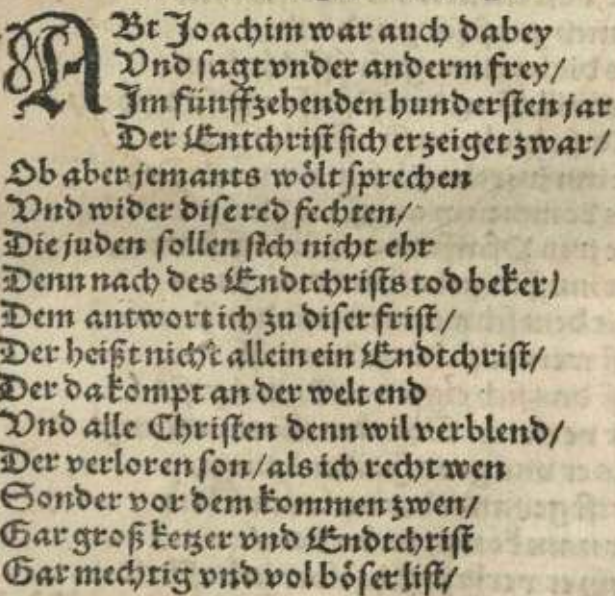 ABt Joachim war auch dabey
Vnd sagt vnder anderm frey/
Im fünffzehenden hundersten jar
Der Entchrist sich erzeiget zwar/
Ob aber jemants wölt sprechen
Vnd wider dise red fechten/
Die juden sollen sich nicht ehr
Denn nach des Endtchrists tod beker/
Dem antwort ich zu diser frist/
Der heißt nicht allein ein Endtchrist/
Der da kömpt an der welt end
Vnd alle Christen denn wil verblend/
Der verloren son/als ich recht wen
Sonder vor dem kommen zwen/
Gar groß ketzer vnd Endtchrist
Gar mechtig vnd vol böser list/